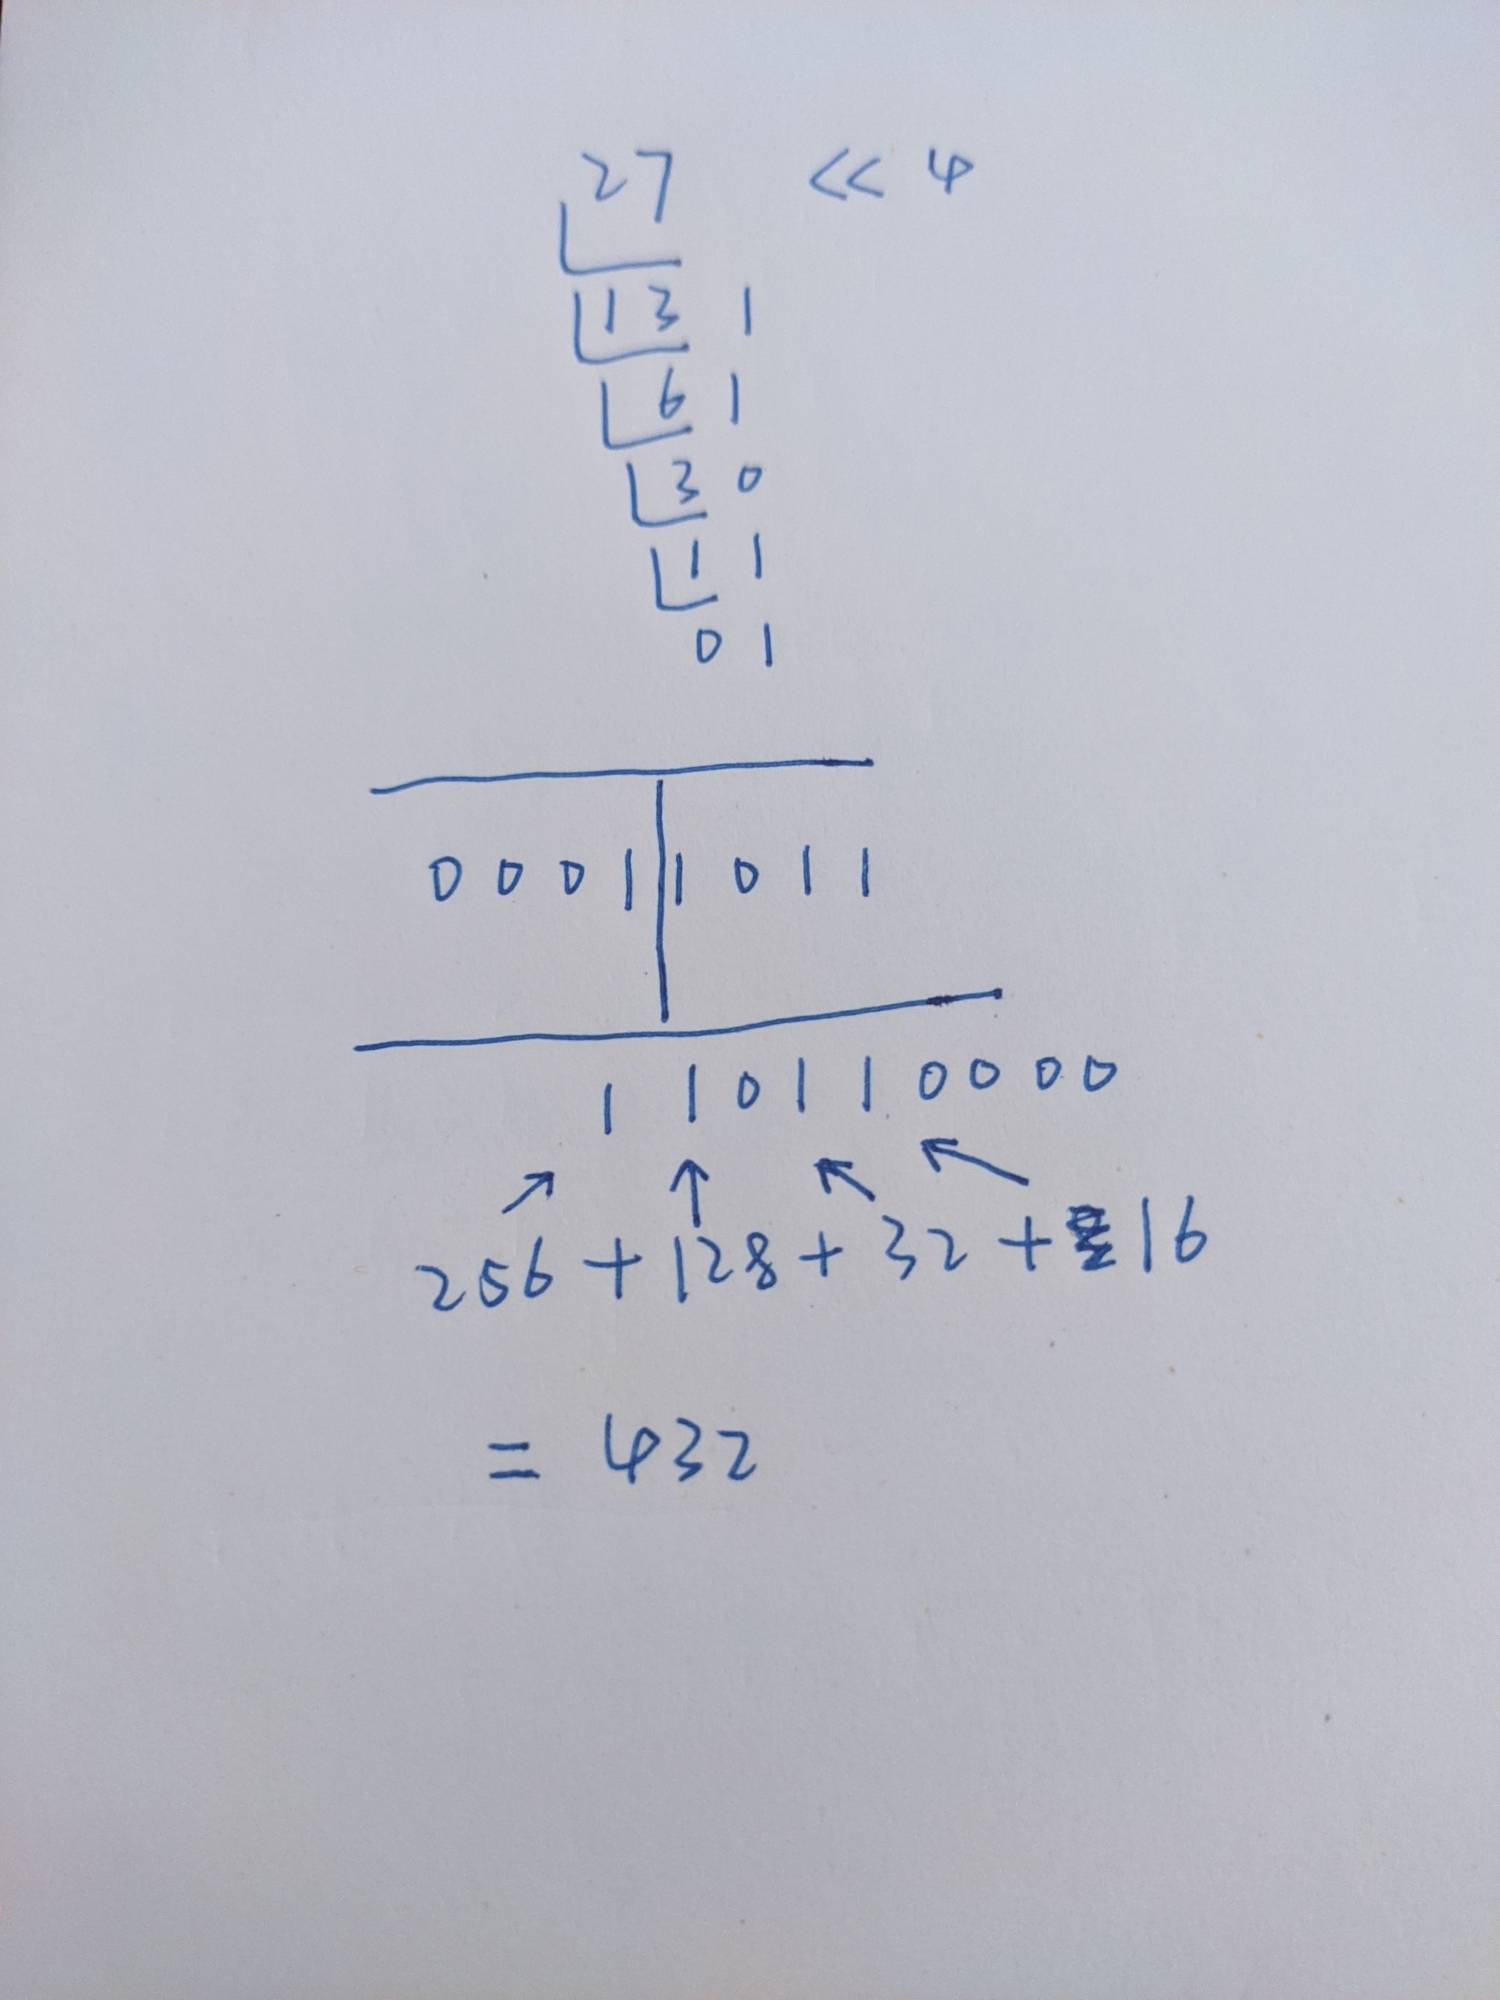 27 << 4
13 1
6 1
3 0
1 1
0 1
0 0 0 1 1 0 1 1
1 1 0 1 1 0 0 0 0
256 + 128 + 32 + 16
= 432